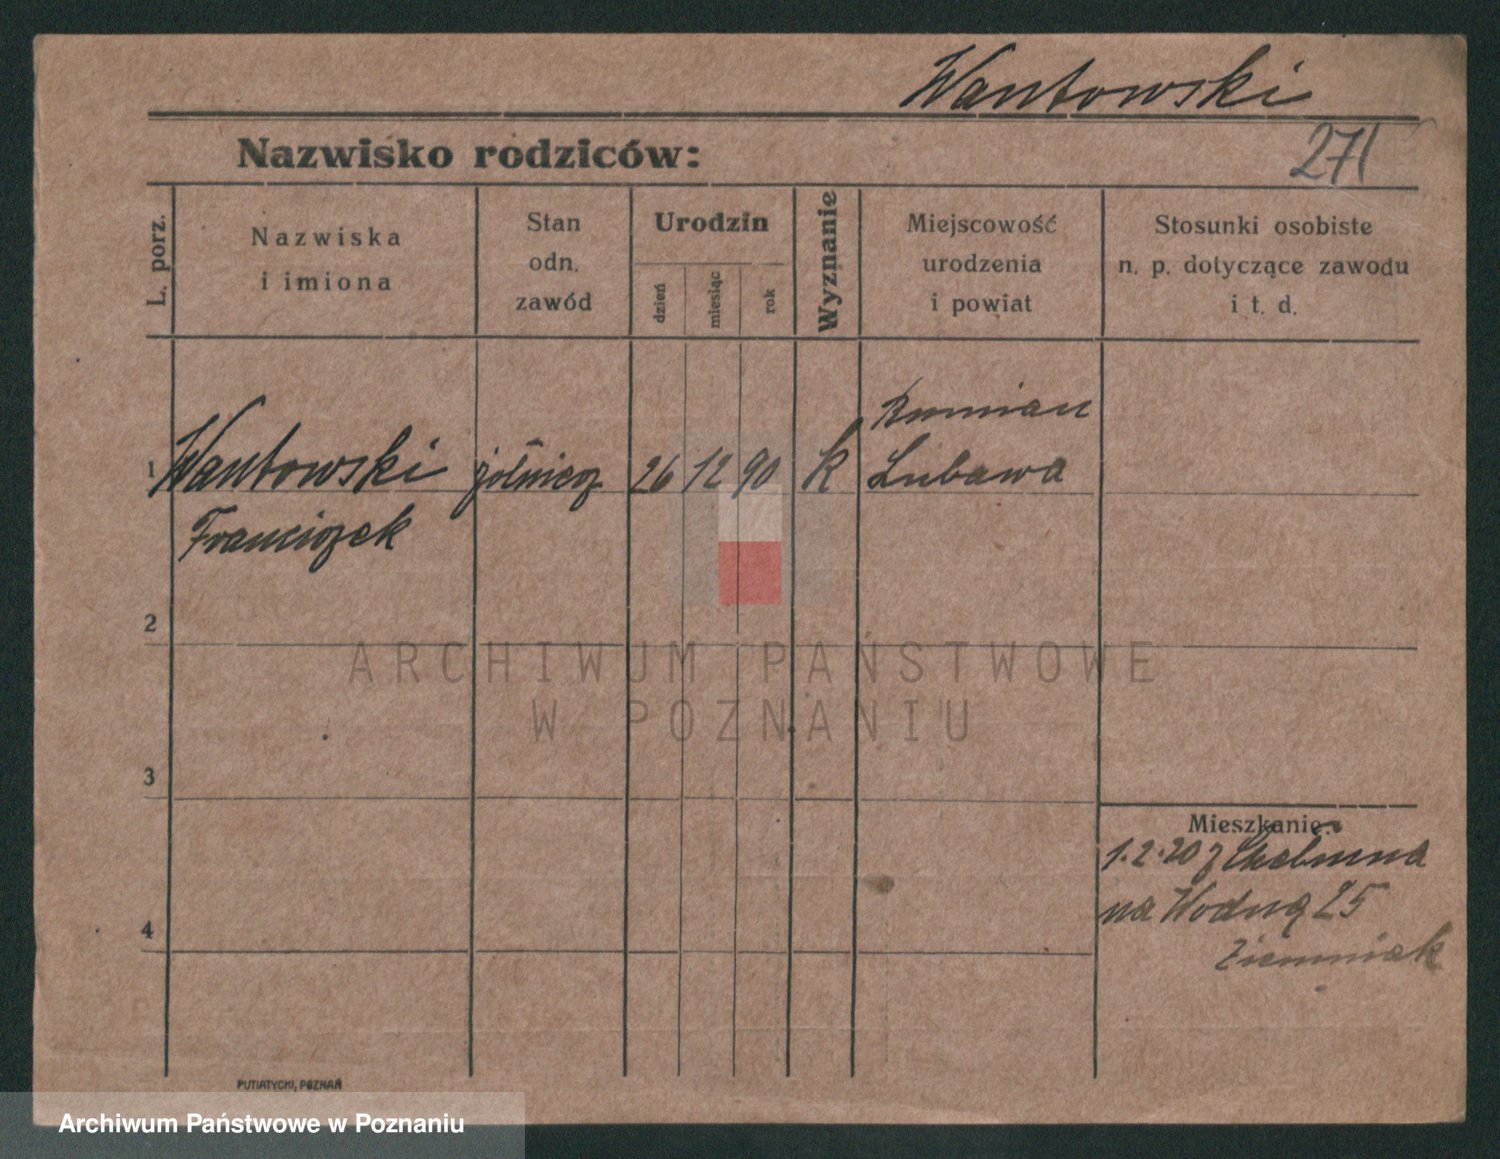 Wantowski
Nazwisko rodziców:
271
L. porz.
Nazwiska
i imiona
Stan
odn.
zawód
Urodzin
dzień
miesiąc
rok
Wyznanie
Miejscowość
urodzenia
i powiat
Stosunki osobiste
n. p. dotyczące zawodu
i t. d.
Rumian
1 Wantowski żołnierz 26 12 90 k Lubawa
Franciszek
2
3
4
Mieszkanie:
1.2.20 z Chełmna
na Wodną 25
Ziemniak
PUTIATYCKI, POZNAŃ
ARCHIWUM PAŃSTWOWE
W POZNANIU
Archiwum Państwowe w Poznaniu